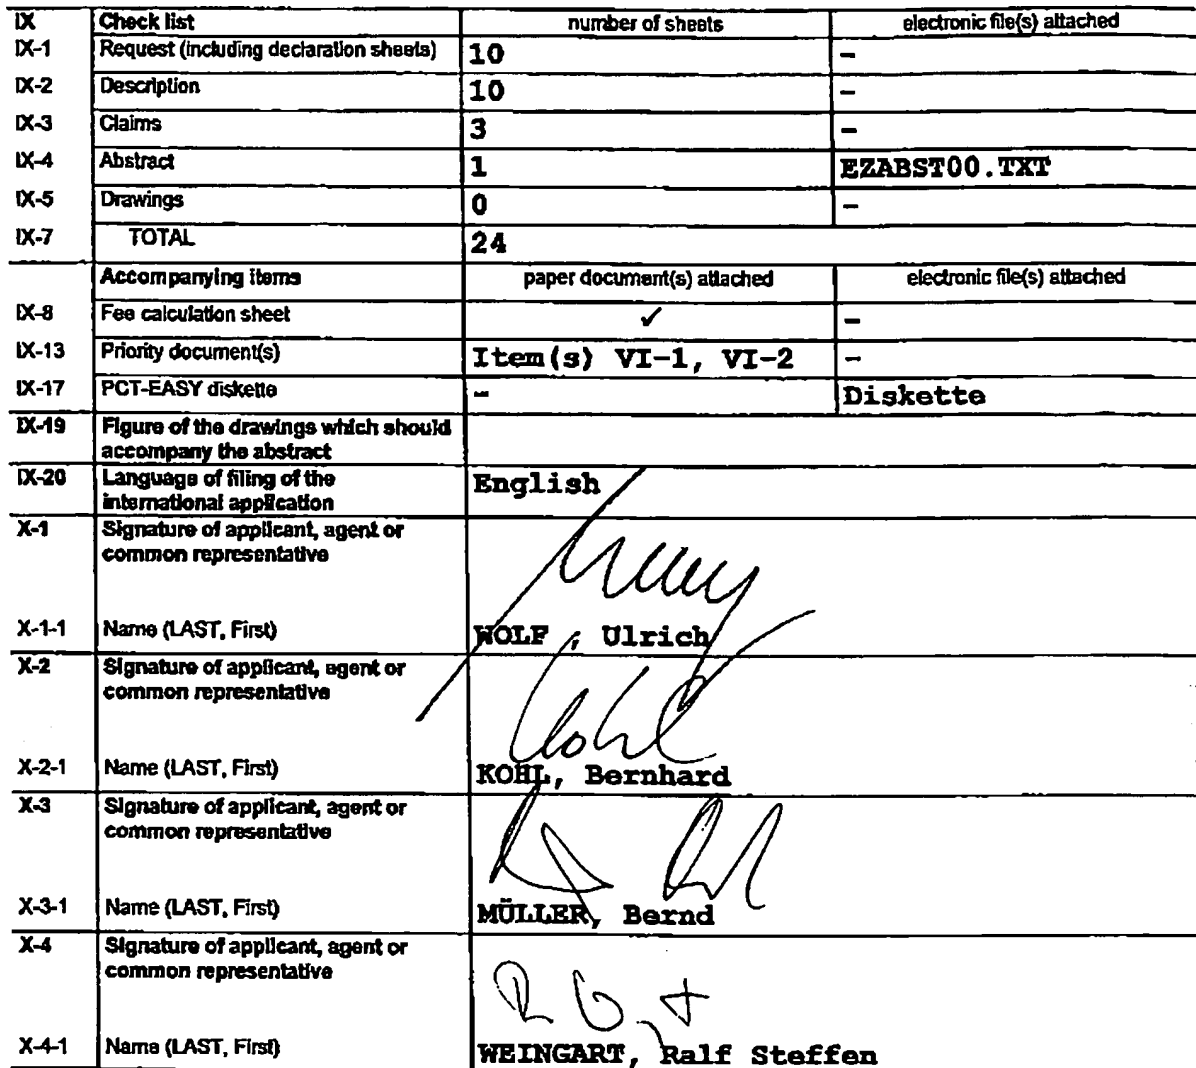 IX Check list number of sheets electronic file(s) attached
IX-1 Request (including declaration sheets) 10 –
IX-2 Description 10 –
IX-3 Claims 3 –
IX-4 Abstract 1 EZABST00.TXT
IX-5 Drawings 0 –
IX-7 TOTAL 24
Accompanying items paper document(s) attached electronic file(s) attached
IX-8 Fee calculation sheet ✓ –
IX-13 Priority document(s) Item(s) VI-1, VI-2 –
IX-17 PCT-EASY diskette – Diskette
IX-19 Figure of the drawings which should
accompany the abstract
IX-20 Language of filing of the English
international application
X-1 Signature of applicant, agent or
common representative
X-1-1 Name (LAST, First) WOLF , Ulrich
X-2 Signature of applicant, agent or
common representative
X-2-1 Name (LAST, First) KOHL, Bernhard
X-3 Signature of applicant, agent or
common representative
X-3-1 Name (LAST, First) MÜLLER, Bernd
X-4 Signature of applicant, agent or
common representative
X-4-1 Name (LAST, First) WEINGART, Ralf Steffen